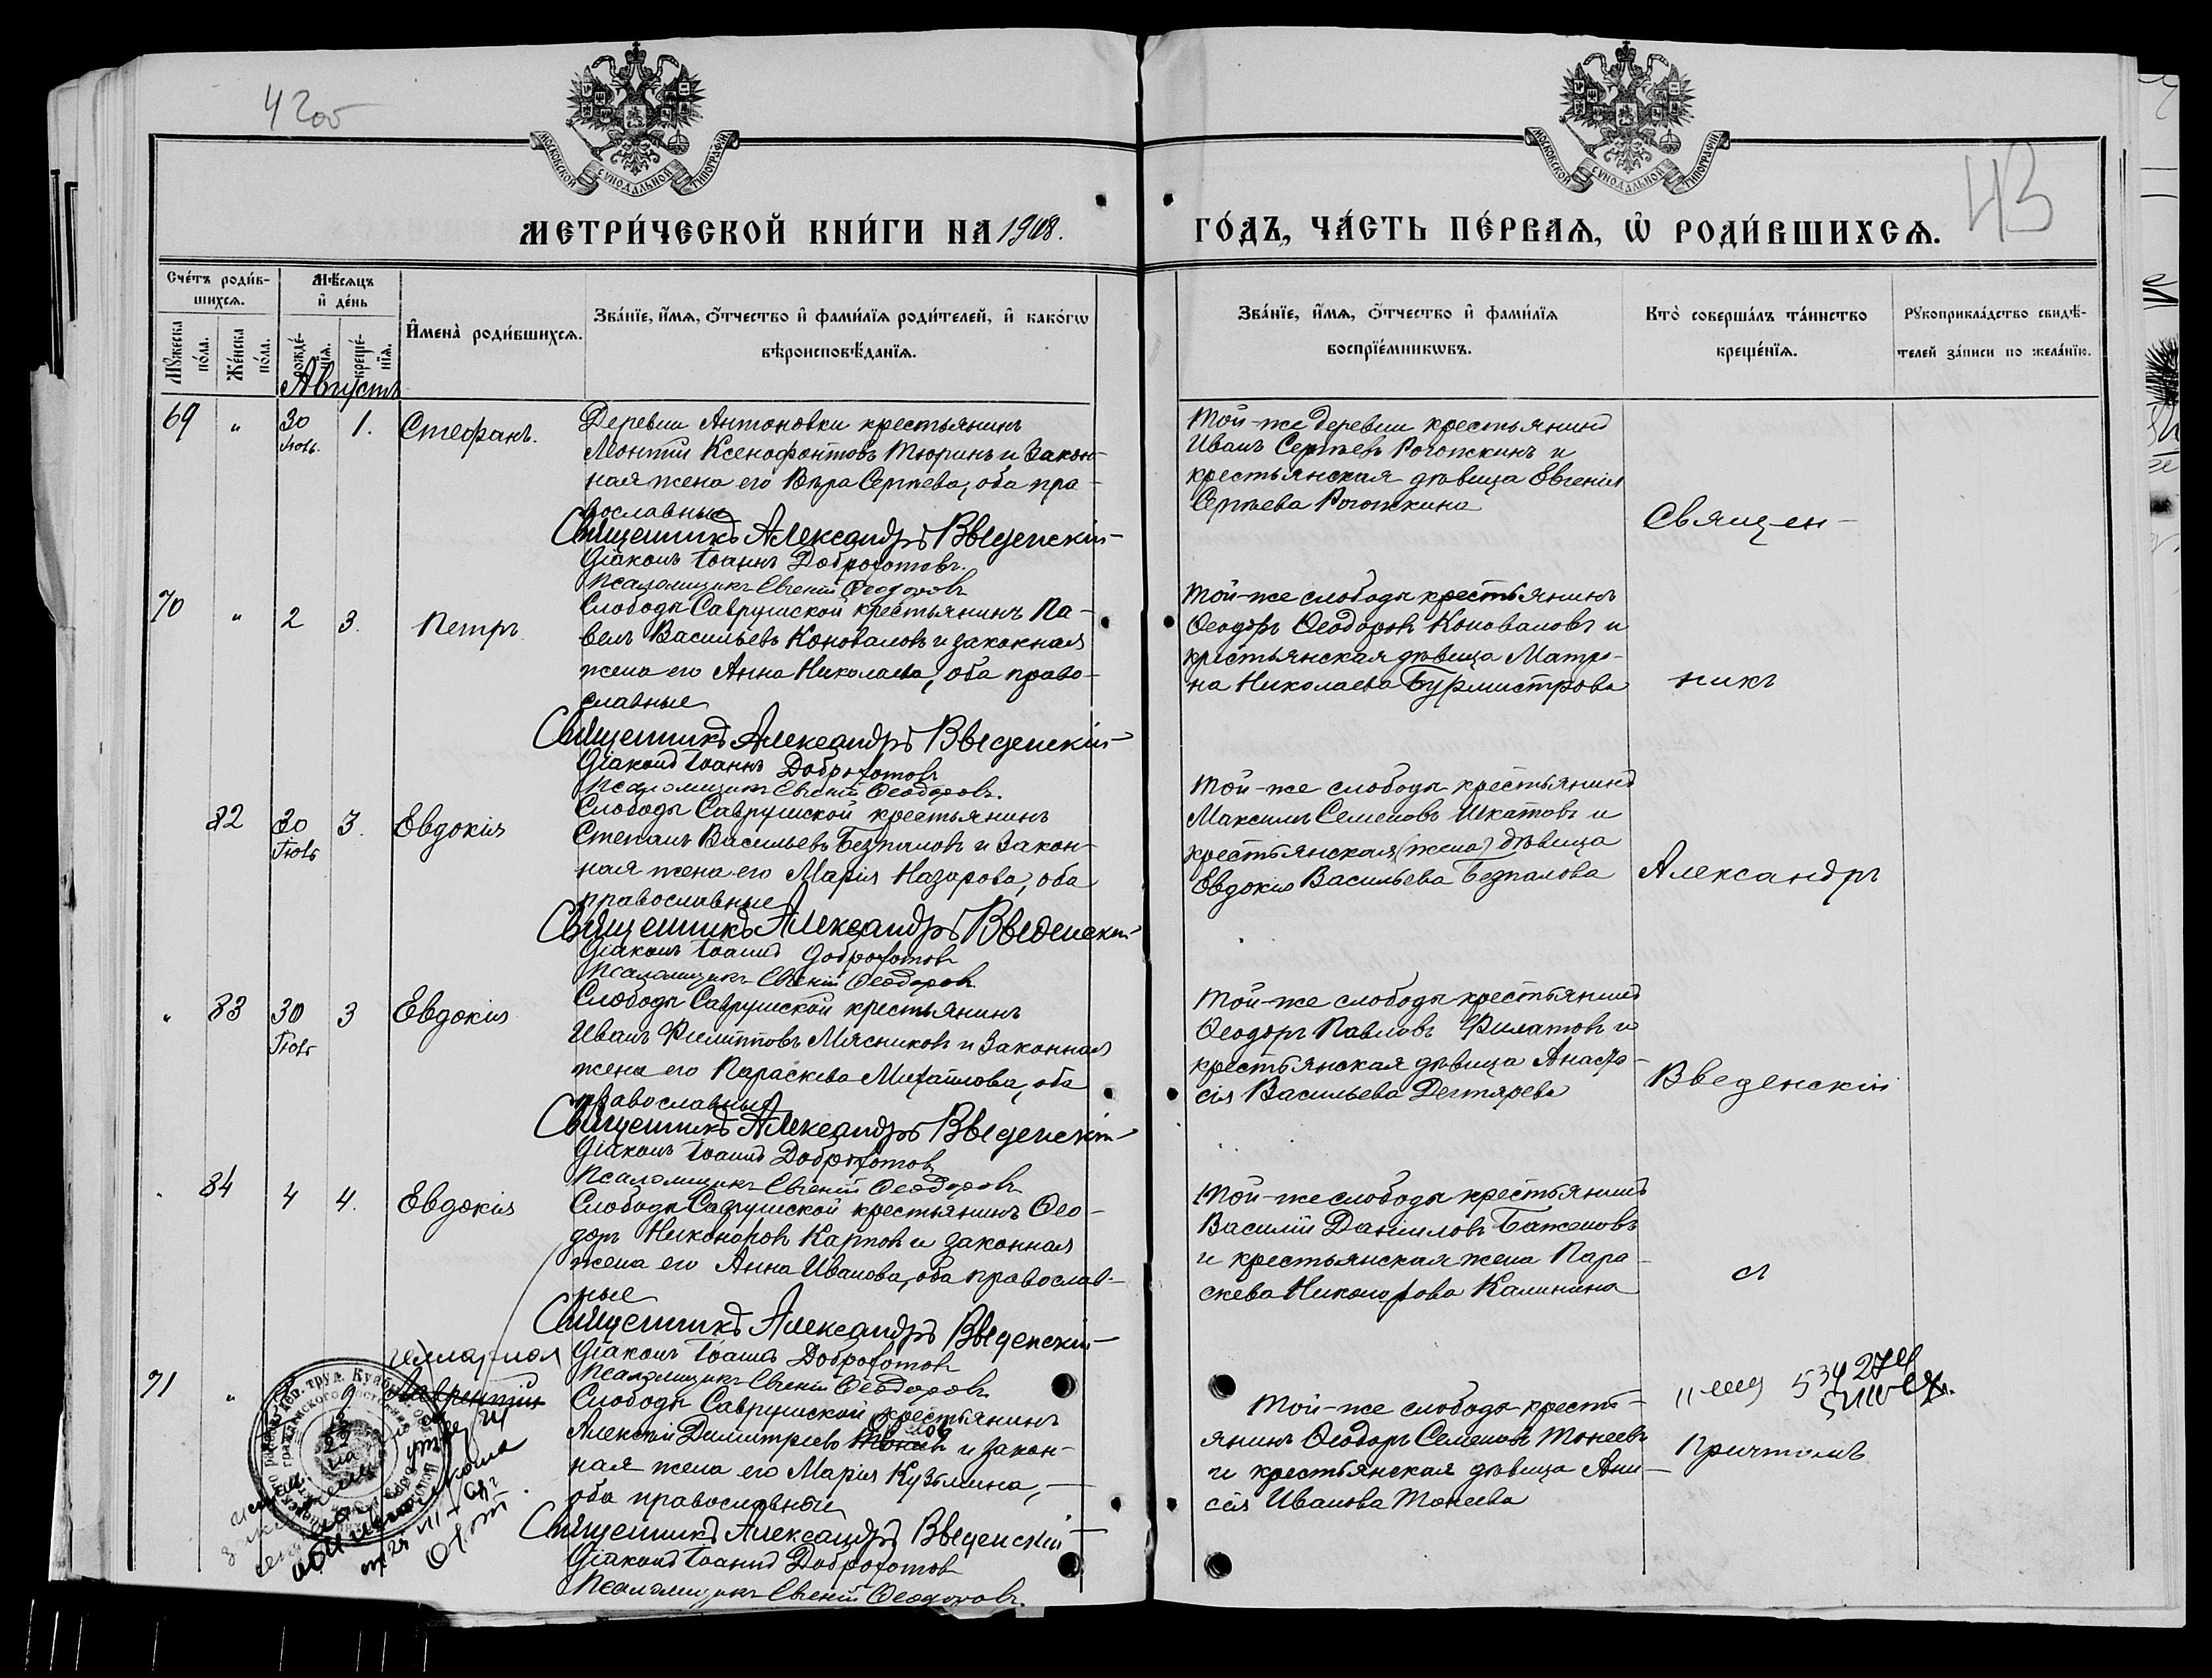 42об
43
МОСКОВСКОЙ СѴНОДАЛЬНОЙ ТИПОГРАФІИ
МОСКОВСКОЙ СѴНОДАЛЬНОЙ ТИПОГРАФІИ
МЕТРИ́ЧЕСКОЙ КНИ́ГИ НА 1908.
ГО́ДЪ, ЧА́СТЬ ПЕ́РВАѦ, Ѡ҆ РОДИ́ВШИХСѦ.
Сче́тъ роди́в-
шихсѧ.
Мꙋ́жеска по́ла.
Же́нска по́ла.
Мѣ́сѧцъ
и҆ де́нь
рожде́-нїѧ.
креще́-нїѧ.
И҆мена̀ роди́вшихсѧ.
Зва́нїе, и҆́мѧ, ѻ҆́тчество и҆ фами́лїѧ роди́телей, и҆ како́гѡ
вѣроисповѣ́данїѧ.
Зва́нїе, и҆́мѧ, ѻ҆́тчество и҆ фами́лїѧ
воспрїе́мникѡвъ.
Кто̀ соверша́лъ та́инство
креще́нїѧ.
Рꙋкоприкла́дство свидѣ́-
телей за́писи по жела́нїю.
Августъ
69 " 30 Іюль. 1. Стефанъ.
Деревни Антоновки крестьянинъ
Леонтій Ксенофонтовъ Тюринъ и закон-
ная жена его Вѣра Сергѣева, оба пра-
вославные
Священникъ Александръ Введенскій
Діаконъ Іоаннъ Доброхотовъ.
Псаломщикъ Евгеній Ѳеодоровъ
Той-же деревни крестьянинъ
Иванъ Сергѣевъ Рогожкинъ и
крестьянская дѣвица Евгенія
Сергѣева Рогожкина
Священ-
70 " 2 3. Петръ
Слободы Саврушской крестьянинъ Па-
велъ Васильевъ Коноваловъ и законная
жена его Анна Николаева, оба право-
славные
Священникъ Александръ Введенскій
Діаконъ Іоаннъ Доброхотовъ
Псаломщикъ Евгеній Ѳеодоровъ.
Той-же слободы крестьянинъ
Ѳеодоръ Ѳеодоровъ Коноваловъ и
крестьянская дѣвица Матро-
на Николаева Бурмистрова
никъ
82 30 Іюль 3. Евдокія
Слободы Саврушской крестьянинъ
Степанъ Васильевъ Безпаловъ и закон-
ная жена его Марія Назарова, оба
православные
Священникъ Александръ Введенскій
Діаконъ Іоаннъ Доброхотовъ
Псаломщикъ Евгеній Ѳеодоровъ.
Той-же слободы крестьянинъ
Максимъ Семеновъ Шкатовъ и
крестьянская (жена) дѣвица
Евдокія Васильева Безпалова
Александръ
" 83 30 Іюль 3 Евдокія
Слободы Саврушской крестьянинъ
Иванъ Филипповъ Мясниковъ и законная
жена его Параскева Михайлова, оба
православные
Священникъ Александръ Введенскій
Діаконъ Іоаннъ Доброхотовъ
Псаломщикъ Евгеній Ѳеодоровъ
Той-же слободы крестьянинъ
Ѳеодоръ Павловъ Филатовъ и
крестьянская дѣвица Анаста-
сія Васильева Дегтярева
Введенскій
84 4 4. Евдокія
Слободы Саврушской крестьянинъ Ѳео-
доръ Никаноровъ Карповъ и законная
жена его Анна Иванова, оба православ-
ные
Священникъ Александръ Введенскій
Діаконъ Іоаннъ Доброхотовъ
Псаломщикъ Евгеній Ѳеодоровъ.
Той-же слободы крестьянинъ
Василій Даниловъ Баженовъ
и крестьянская жена Пара-
скева Никанорова Калинина
съ
71 " 9 Лаврентій
Слободы Саврушской крестьянинъ
Алексій Димитріевъ и закон-
ная жена его Марія Кузьмина,
оба православные
Священникъ Александръ Введенскій
Діаконъ Іоаннъ Доброхотовъ
Псаломщикъ Евгеній Ѳеодоровъ.
Той-же слободы кресть-
янинъ Ѳеодоръ Семеновъ Тонеевъ
и крестьянская дѣвица Ани-
сія Иванова Тонеева
Причтомъ